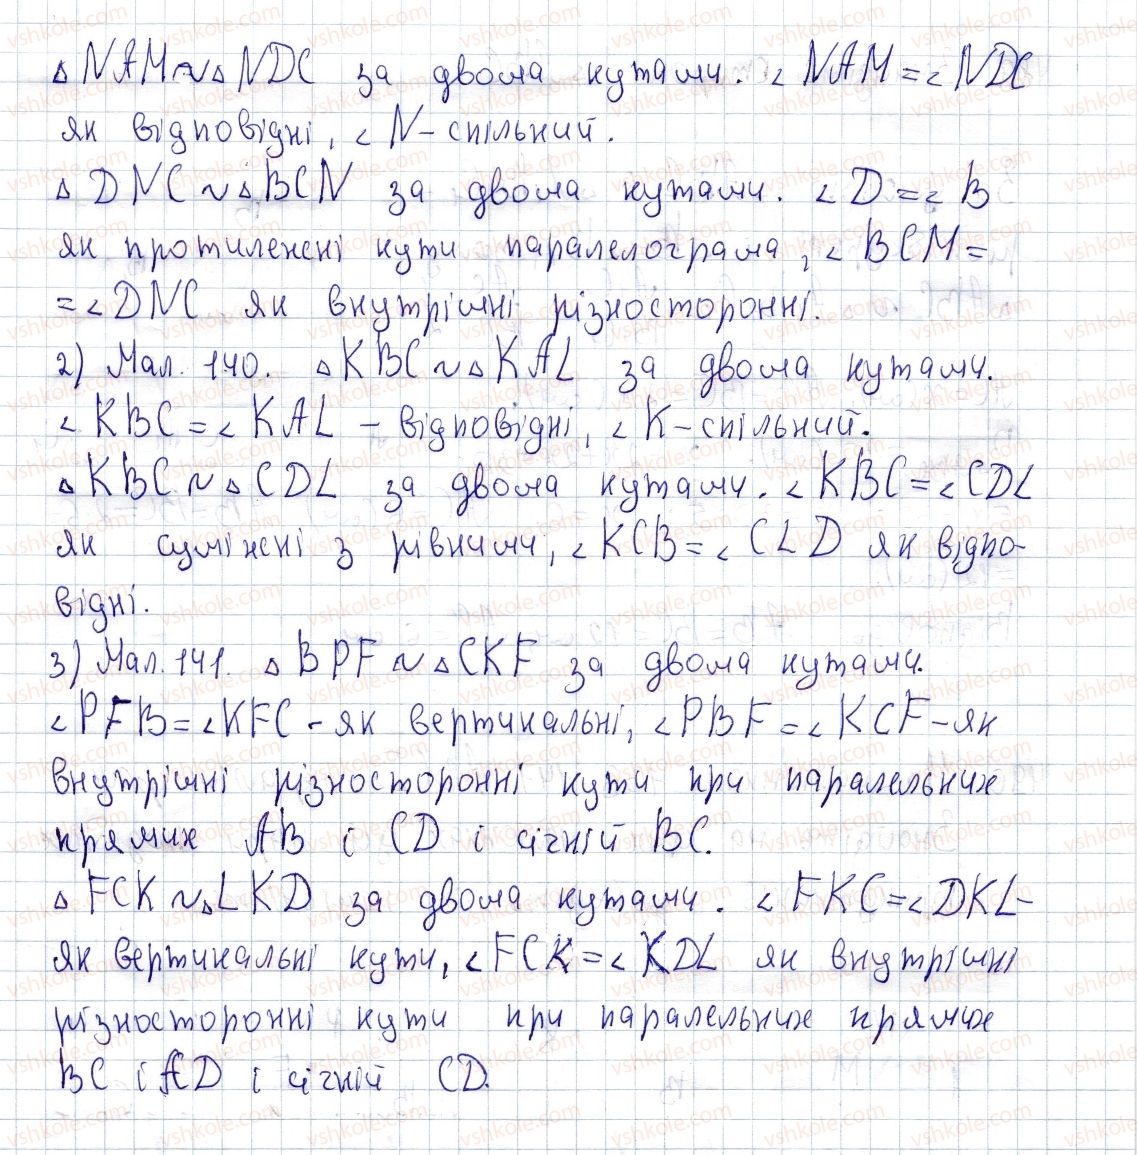 △NAM ~ △NDC за двома кутами. ∠NAM = ∠NDC
як відповідні, ∠N - спільний.
△DNC ~ △BCN за двома кутами. ∠D = ∠B
як протилежні кути паралелограма, ∠BCM =
= ∠DNC як внутрішні різносторонні.
2) Мал. 140. △KBC ~ △KAL за двома кутами.
∠KBC = ∠KAL – відповідні, ∠K - спільний.
△KBC ~ △CDL за двома кутами. ∠KBC = ∠CDL
як суміжні з рівними, ∠KCB = ∠CLD як відпо-
відні.
3) Мал. 141. △BPF ~ △CKF за двома кутами.
∠PFB = ∠KFC - як вертикальні, ∠PBF = ∠KCF - як
внутрішні різносторонні кути при паралельних
прямих AB і CD і січній BC.
△FCK ~ △LKD за двома кутами. ∠FKC = ∠DKL -
як вертикальні кути, ∠FCK = ∠KDL як внутрішні
різносторонні кути при паралельних прямих
BC і AD і січній CD.